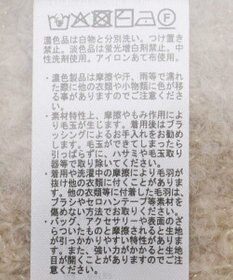 濃色品は白物と分別洗い。つけ置き
禁止。淡色品は蛍光増白剤禁止。中
性洗剤使用。アイロンあて布使用。
・濃色製品は摩擦や汗、雨等で濡れ
た際に他の衣類や小物類に色が移
る事がありますのでご注意くださ
い。
・素材特性上、摩擦やもみ作用によ
り毛玉が生じます。着用後はブラ
ッシングによるお手入れをお勧め
します。毛玉ができてしまったら
引っぱらずに、ハサミや毛玉取り
器等で取り除いてください。
・着用や洗濯中の摩擦により毛羽が
抜けて他の衣類等に付くことがあり
ます。他の衣類等に付着した毛羽は、
ブラシやセロハンテープ等素材を
傷めない方法でお取りください。
・バッグ、アクセサリーや表面のざ
らついたものと摩擦されると生地
が引っかかりやすい特性がありま
す。また、強い力がかかると生地
目が開くことがありますのでご注
意ください。